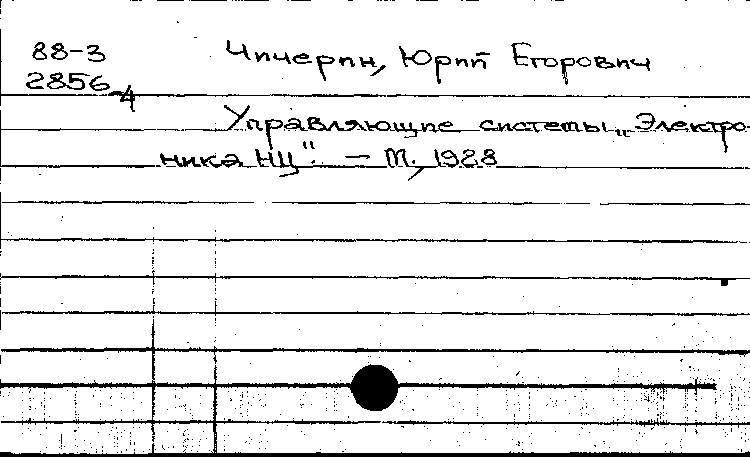 88-3 Чичерин, Юрий Егорович
2856-4
Управляющие системы „Электро-
ника НЦ". — М., 1928